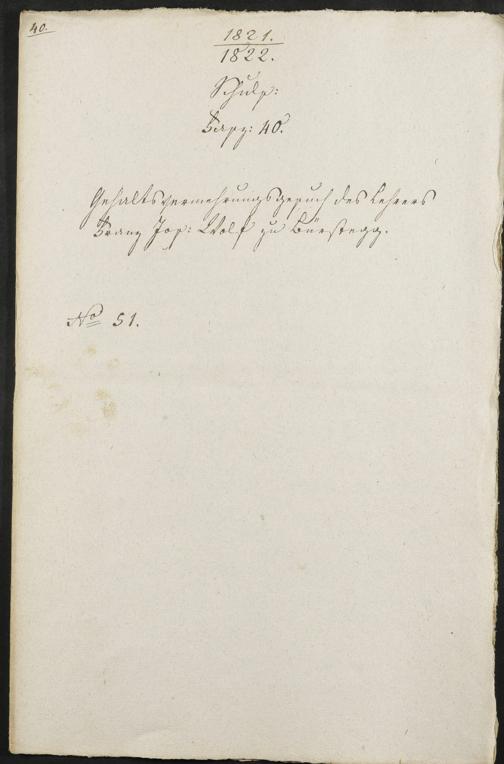 40.
1821.
1822.
Schulf:
Fasz: 40.
Gehaltsvermehrungsgesuch des Lehrers
Franz Jos: Wolf zu Bürstegg.
No 51.